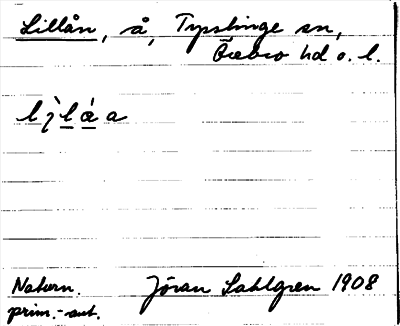 Lillån, å, Tysslinge sn,
Örebro hd o. l.
Naturn. Jöran Sahlgren 1908
prim.-uut.